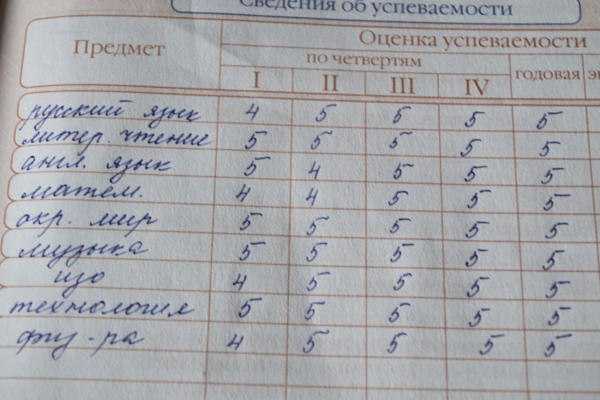 Сведения об успеваемости
Предмет
Оценка успеваемости
по четвертям
I II III IV годовая
русский язык 4 5 5 5 5
литер. чтение 5 5 5 5 5
англ. язык 5 4 5 5 5
матем. 4 4 5 5 5
окр. мир 5 5 5 5 5
музыка 5 5 5 5 5
изо 4 5 5 5 5
технология 5 5 5 5 5
физ-ра 4 5 5 5 5